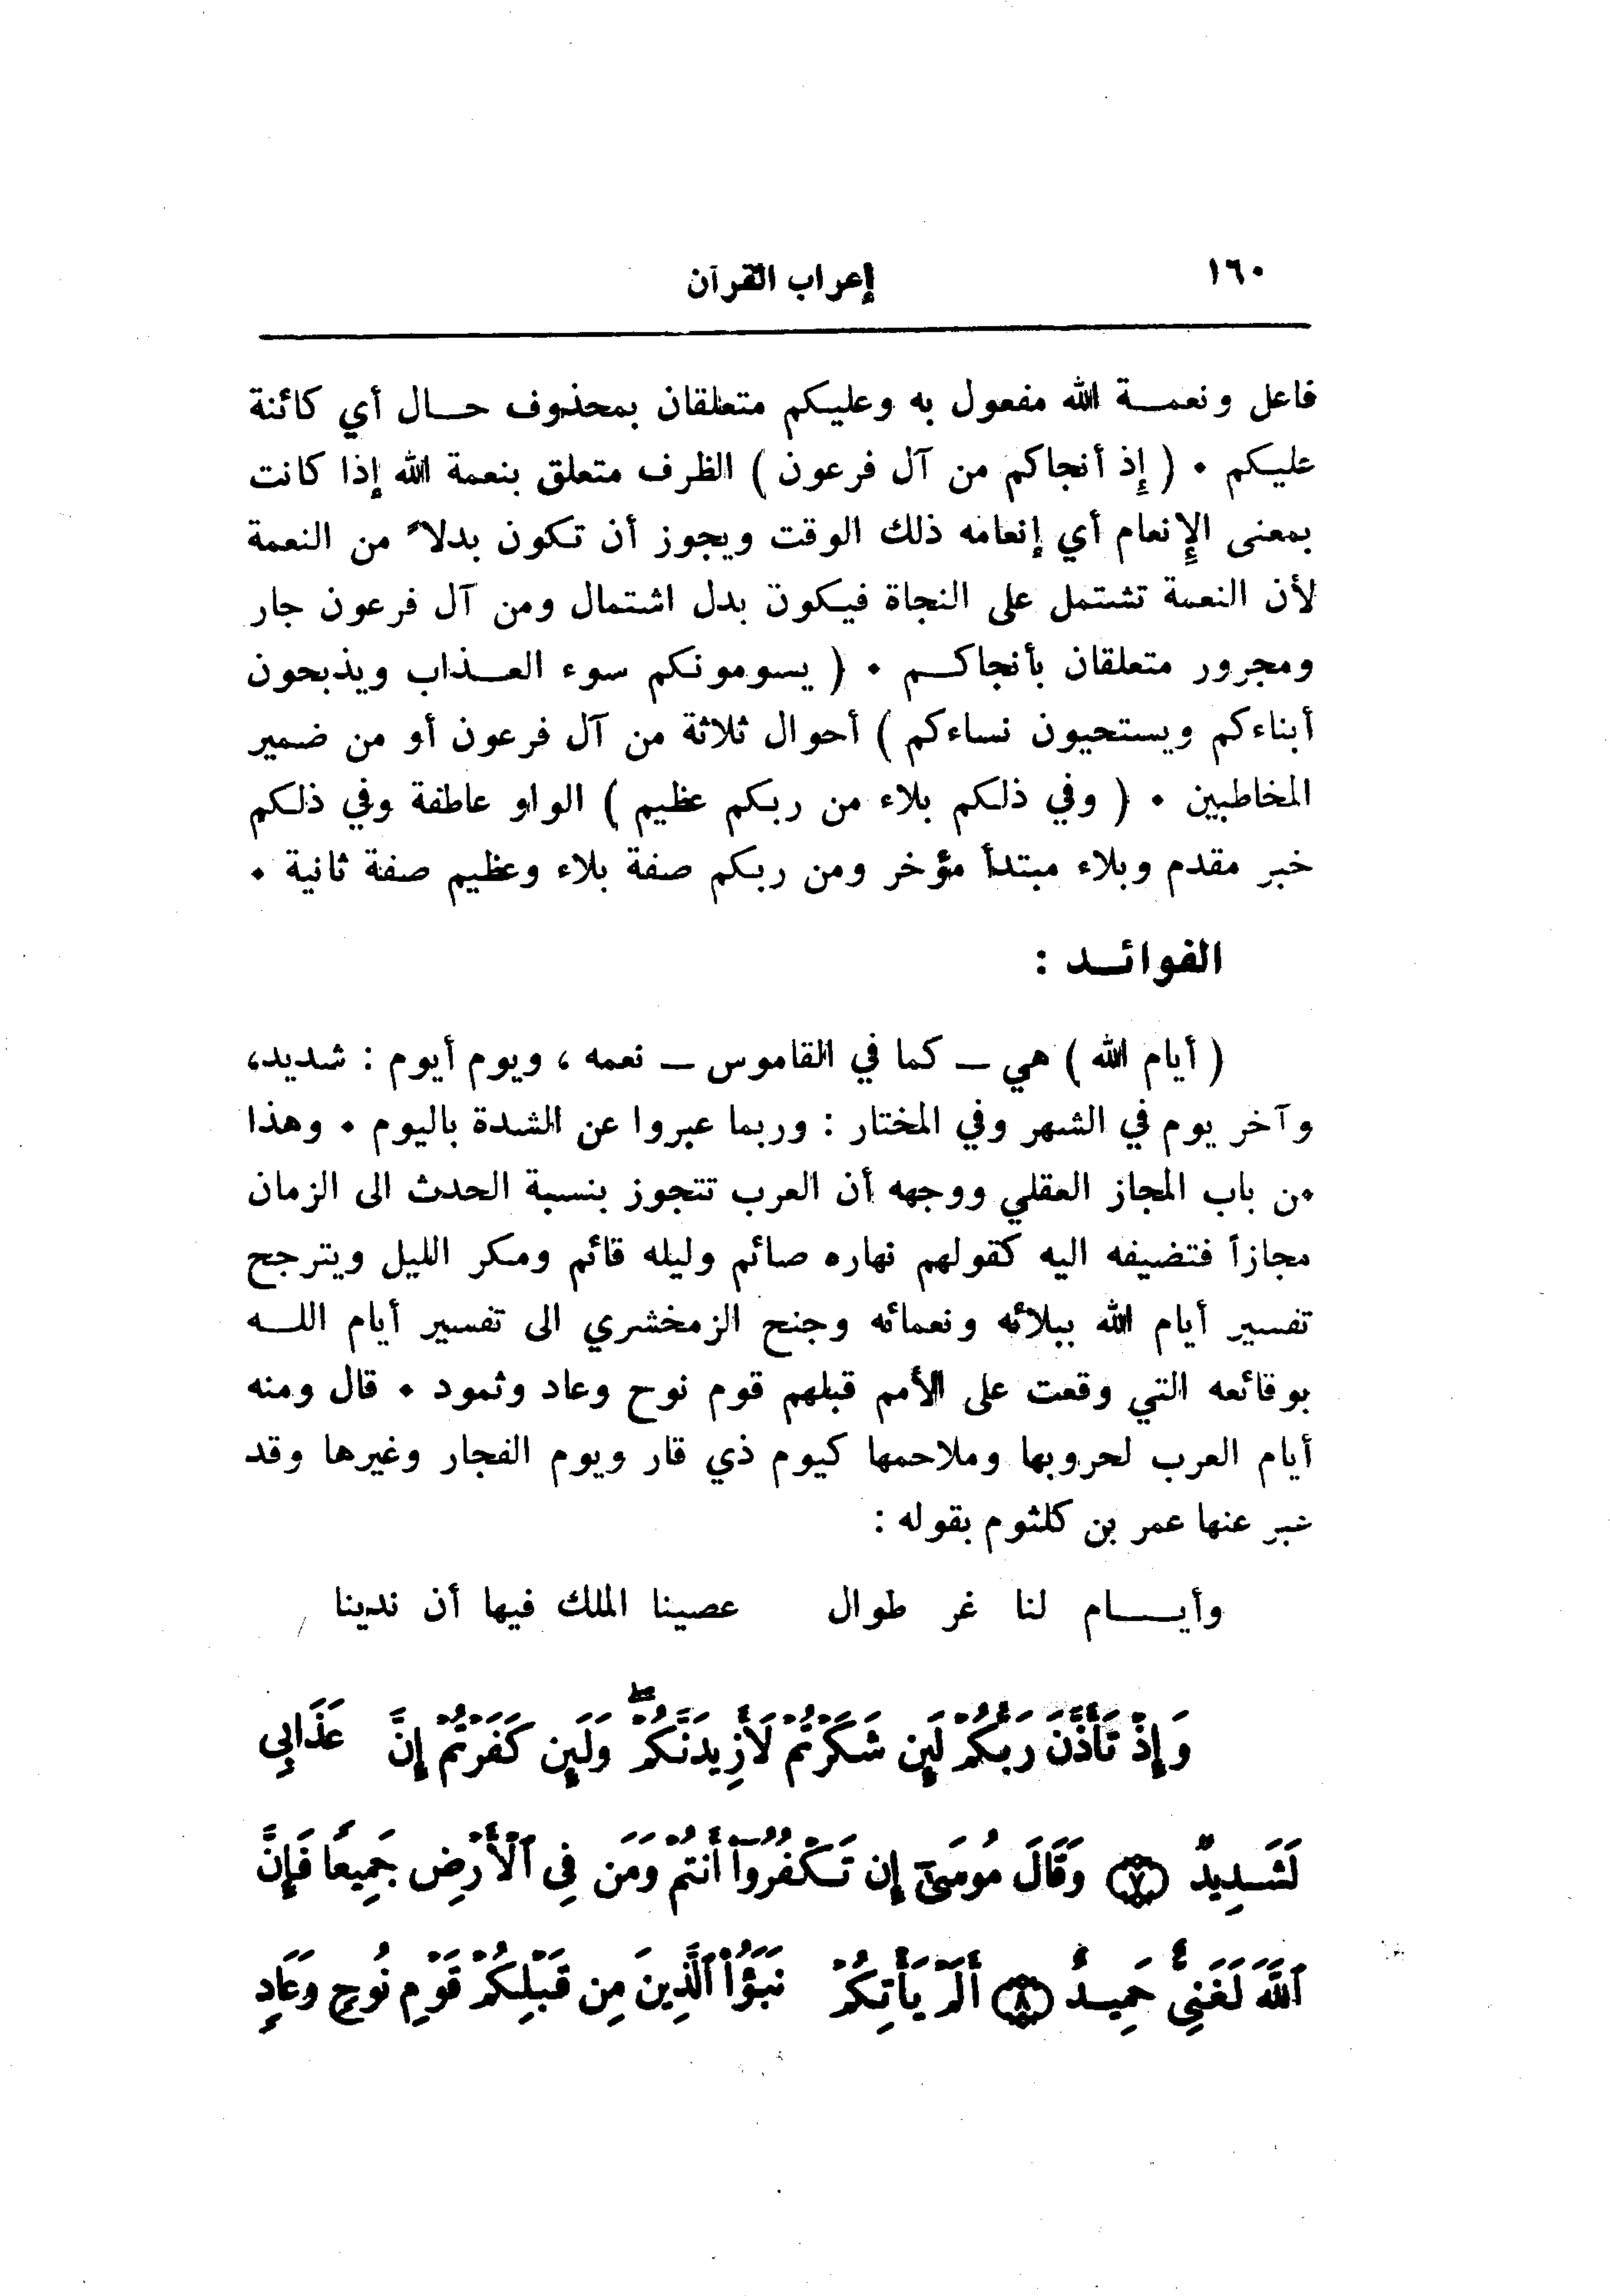 ١٦٠
إعراب القرآن
فاعل ونعمـــة الله مفعول به وعليكم متعلقان بمحذوف حـــال أي كائنة
عليكم ٠ ( إِذ أنجاكم من آل فرعون ) الظرف متعلق بنعمة الله إذا كانت
بمعنى الإِنعام أي إنعامه ذلك الوقت ويجوز أن تكون بدلاً من النعمة
لأن النعمة تشتمل على النجاة فيكون بدل اشتمال ومن آل فرعون جار
ومجرور متعلقان بأنجاكـــم ٠ ( يسومونكم سوء العـــذاب ويذبحون
أبناءكم ويستحيون نساءكم ) أحوال ثلاثة من آل فرعون أو من ضمير
المخاطبين ٠ ( وفي ذلكم بلاء من ربكم عظيم ) الواو عاطفة وفي ذلكم
خبر مقدم وبلاء مبتدأ مؤخر ومن ربكم صفة بلاء وعظيم صفة ثانية ٠
الفوائـــد :
( أيام الله ) هي ــ كما في القاموس ــ نعمه ، ويوم أيوم : شديد،
وآخر يوم في الشهر وفي المختار : وربما عبروا عن الشدة باليوم ٠ وهذا
من باب المجاز العقلي ووجهه أن العرب تتجوز بنسبة الحدث الى الزمان
مجازاً فتضيفه اليه كقولهم نهاره صائم وليله قائم ومكر الليل ويترجح
تفسير أيام الله ببلائه ونعمائه وجنح الزمخشري الى تفسير أيام اللـــه
بوقائعه التي وقعت على الأمم قبلهم قوم نوح وعاد وثمود ٠ قال ومنه
أيام العرب لحروبها وملاحمها كيوم ذي قار ويوم الفجار وغيرها وقد
عبر عنها عمر بن كلثوم بقوله :
وأيـــــام لنا غر طوال عصينا الملك فيها أن ندينا
وَإِذْ تَأَذَّنَ رَبُّكُمْ لَئِن شَكَرْتُمْ لَأَزِيدَنَّكُمْ ۖ وَلَئِن كَفَرْتُمْ إِنَّ عَذَابِي
لَشَدِيدٌ ﴿٧﴾ وَقَالَ مُوسَىٰٓ إِن تَكْفُرُوٓا۟ أَنتُمْ وَمَن فِى ٱلْأَرْضِ جَمِيعًا فَإِنَّ
ٱللَّهَ لَغَنِىٌّ حَمِيدٌ ﴿٨﴾ أَلَمْ يَأْتِكُمْ نَبَؤُا۟ ٱلَّذِينَ مِن قَبْلِكُمْ قَوْمِ نُوحٍ وَعَادٍ